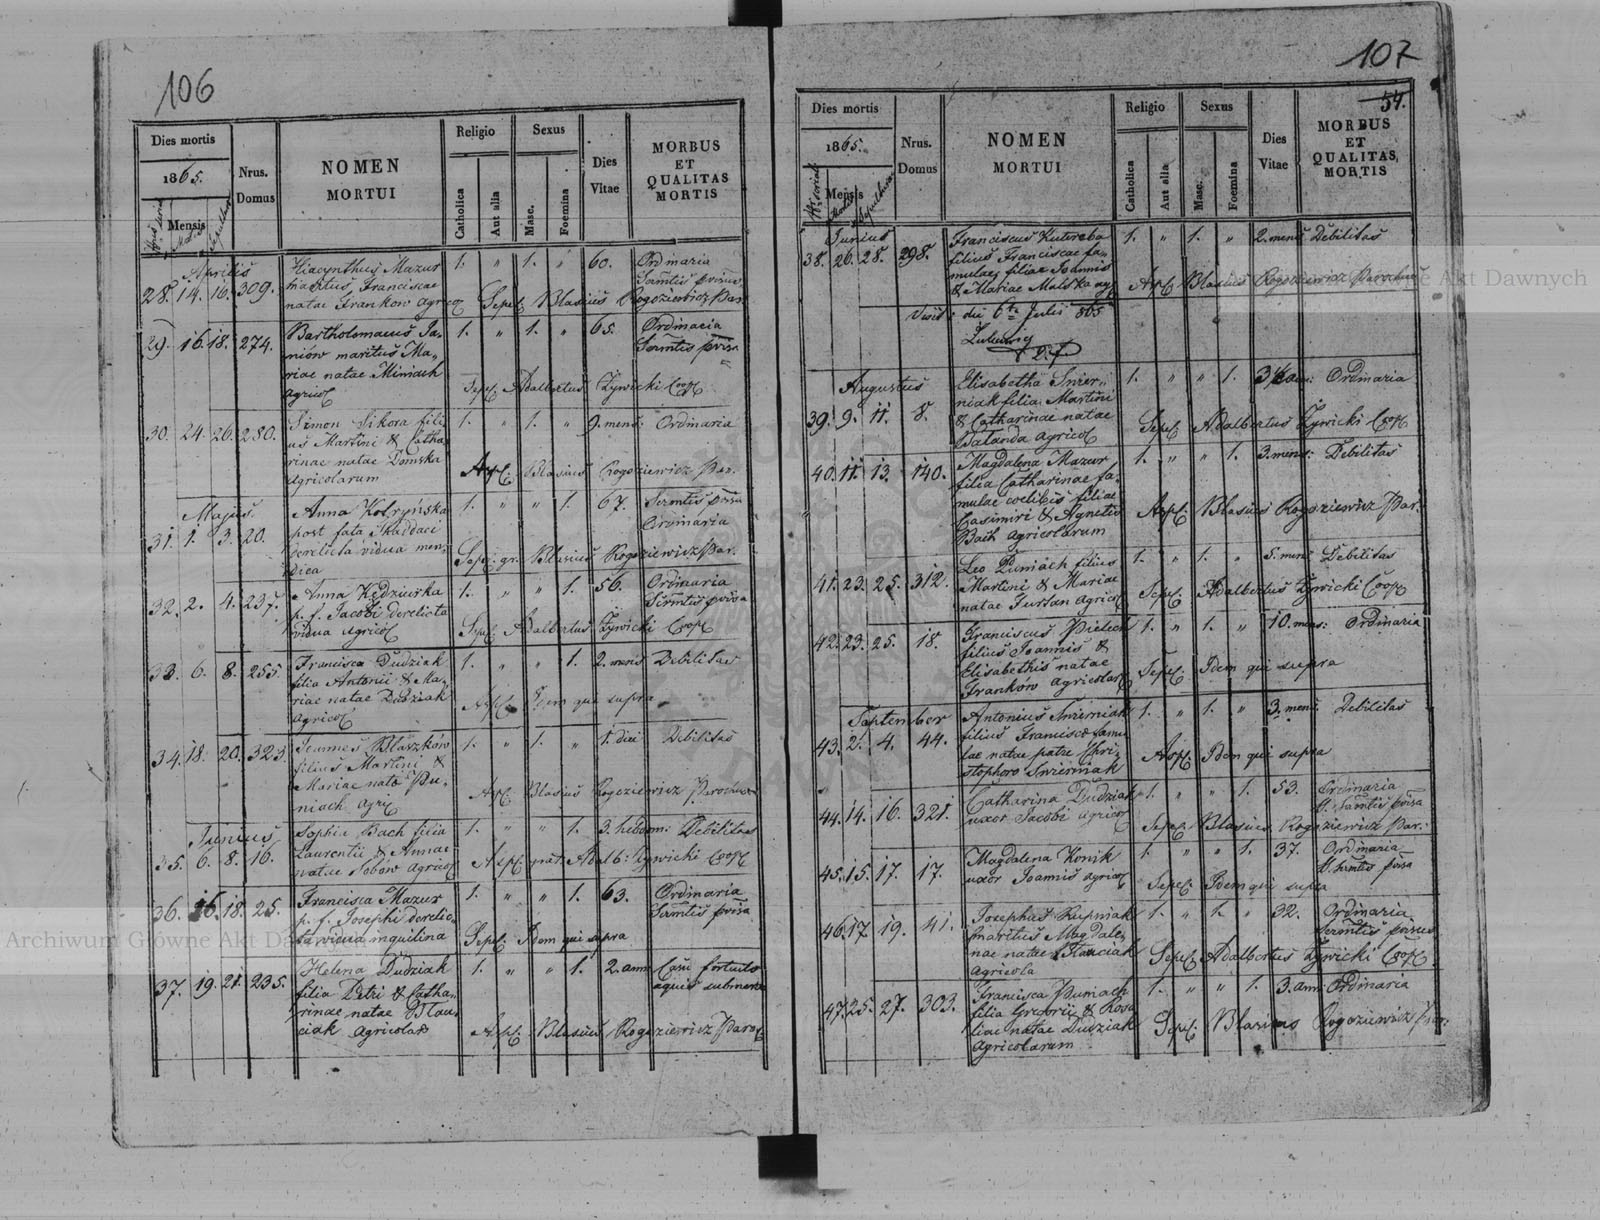 106
Dies mortis
1865.
Mensis
Nrus.
Domus
NOMEN
MORTUI
Religio
Catholica
Aut alia
Sexus
Masc.
Foemina
Dies
Vitae
MORBUS
ET
QUALITAS
MORTIS
Aprilis
28. 14. 16. 309. Hiacynthus Mazur 1. " 1. " 60. Ordinaria
maritus Franciscae
natae Franków agric Sepel. Blasius Rogoziewicz Par.
29. 16. 18. 274. Bartholomaeus Ja- 1. " 1. " 65. Ordinaria
niów maritus Ma-
riae natae Miniach
agricol Sepel. Adalbertus Żywicki Coop
30. 24. 26. 280. Simon Sikora fili 1. " 1. " 9. mens: Ordinaria
us Martini & Catha
rinae natae Domska
agricolarum Blasius Rogoziewicz Par.
Majus
31. 1. 3. 20. Anna Kotryńska 1. " " 1. 67.
post fata Thaddaei Ordinaria
derelicta vidua men-
dica Sepel. gr. Blasius Rogoziewicz Par.
32. 2. 4. 237. Anna Kędziurka 1. " " 1. 56. Ordinaria
p. f. Jacobi derelicta
vidua agricol Sepel. Adalbertus Żywicki Coop
33. 6. 8. 255. Francisca Dudziak 1. " " 1. 2. mens Debilitas
filia Antonii & Ma-
riae natae Dudziak
agricol Idem qui supra
34. 18. 20. 323. Joannes Błaszków 1. " 1. " 1. diei Debilitas
filius Martini &
Mariae nata Pu-
niach agric Blasius Rogoziewicz Parochus
Junius
35. 6. 8. 16. Sophia Bach filia 1. " " 1. 3. hebdom: Debilitas
Laurentii & Annae
natae Sobów agricol Adalb: Żywicki Coop
36. 16. 18. 25. Francisca Mazur 1. " " 1. 63. Ordinaria
p. f. Josephi derelic-
ta vidua inquilina Sepel. Idem qui supra
37. 19. 21. 235. Helena Dudziak 1. " " 1. 2. ann Casu fortuito
filia Petri & Catha- aquis submersa
rinae natae Błau-
ciak agricolar Blasius Rogoziewicz Paroc
107
54.
Dies mortis
1865.
Mensis
Nrus.
Domus
NOMEN
MORTUI
Religio
Catholica
Aut alia
Sexus
Masc.
Foemina
Dies
Vitae
MORBUS
ET
QUALITAS
MORTIS
Junius
38. 26. 28. 298. Franciscus Kutereba 1. " 1. " 2. mens Debilitas
filius Franciscae fa-
mulae filiae Joannis
& Mariae Malska ag Blasius Rogoziewicz Parochus
Visit: die 6ta Julii 865
Augustus
39. 9. 11. 8. Elisabetha Smier- 1. " " 1. Ordinaria
niak filia Martini
& Catharinae natae
Batanda agricol Sepel. Adalbertus Żywicki Coop
40. 11. 13. 140. Magdalena Mazur 1. " " 1. 3. mens: Debilitas
filia Catharinae fa-
mulae coelibis filiae
Casimiri & Agnetis
Bach agricolarum Blasius Rogoziewicz Par.
41. 23. 25. 312. Leo Puniach filius 1. " 1. " 5. mens Debilitas
Martini & Mariae
natae Furtan agricol Sepel. Adalbertus Żywicki Coop
42. 23. 25. 18. Franciscus Pielech 1. " 1. " 10. mens: Ordinaria
filius Joannis &
Elisabethis natae
Franków agricolar Sepel. Idem qui supra
September
43. 2. 4. 44. Antonius Smierniak 1. " 1. " 3. mens: Debilitas
filius Franciscae famu
lae natae patre Chri-
stophoro Smierniak Idem qui supra
44. 14. 16. 321. Catharina Dudziak 1. " " 1. 53. Ordinaria
uxor Jacobi agricol
Sepel. Blasius Rogoziewicz Par.
45. 15. 17. 17. Magdalena Konik 1. " " 1. 37. Ordinaria
uxor Joannis agricol
Sepel. Idem qui supra
46. 17 19. 41. Josephus Rupniak 1. " 1. " 32. Ordinaria
maritus Magdale-
nae natae Tłuściak
agricola Sepel. Adalbertus Żywicki Coop
47. 25. 27. 303. Francisca Puniach 1. " " 1. 3. ann Ordinaria
filia Gregorii & Rosa
liae natae Dudziak Sepel. Blasius Rogoziewicz Par.
agricolarum
Archiwum Główne Akt Dawnych
Archiwum Główne Akt Dawnych